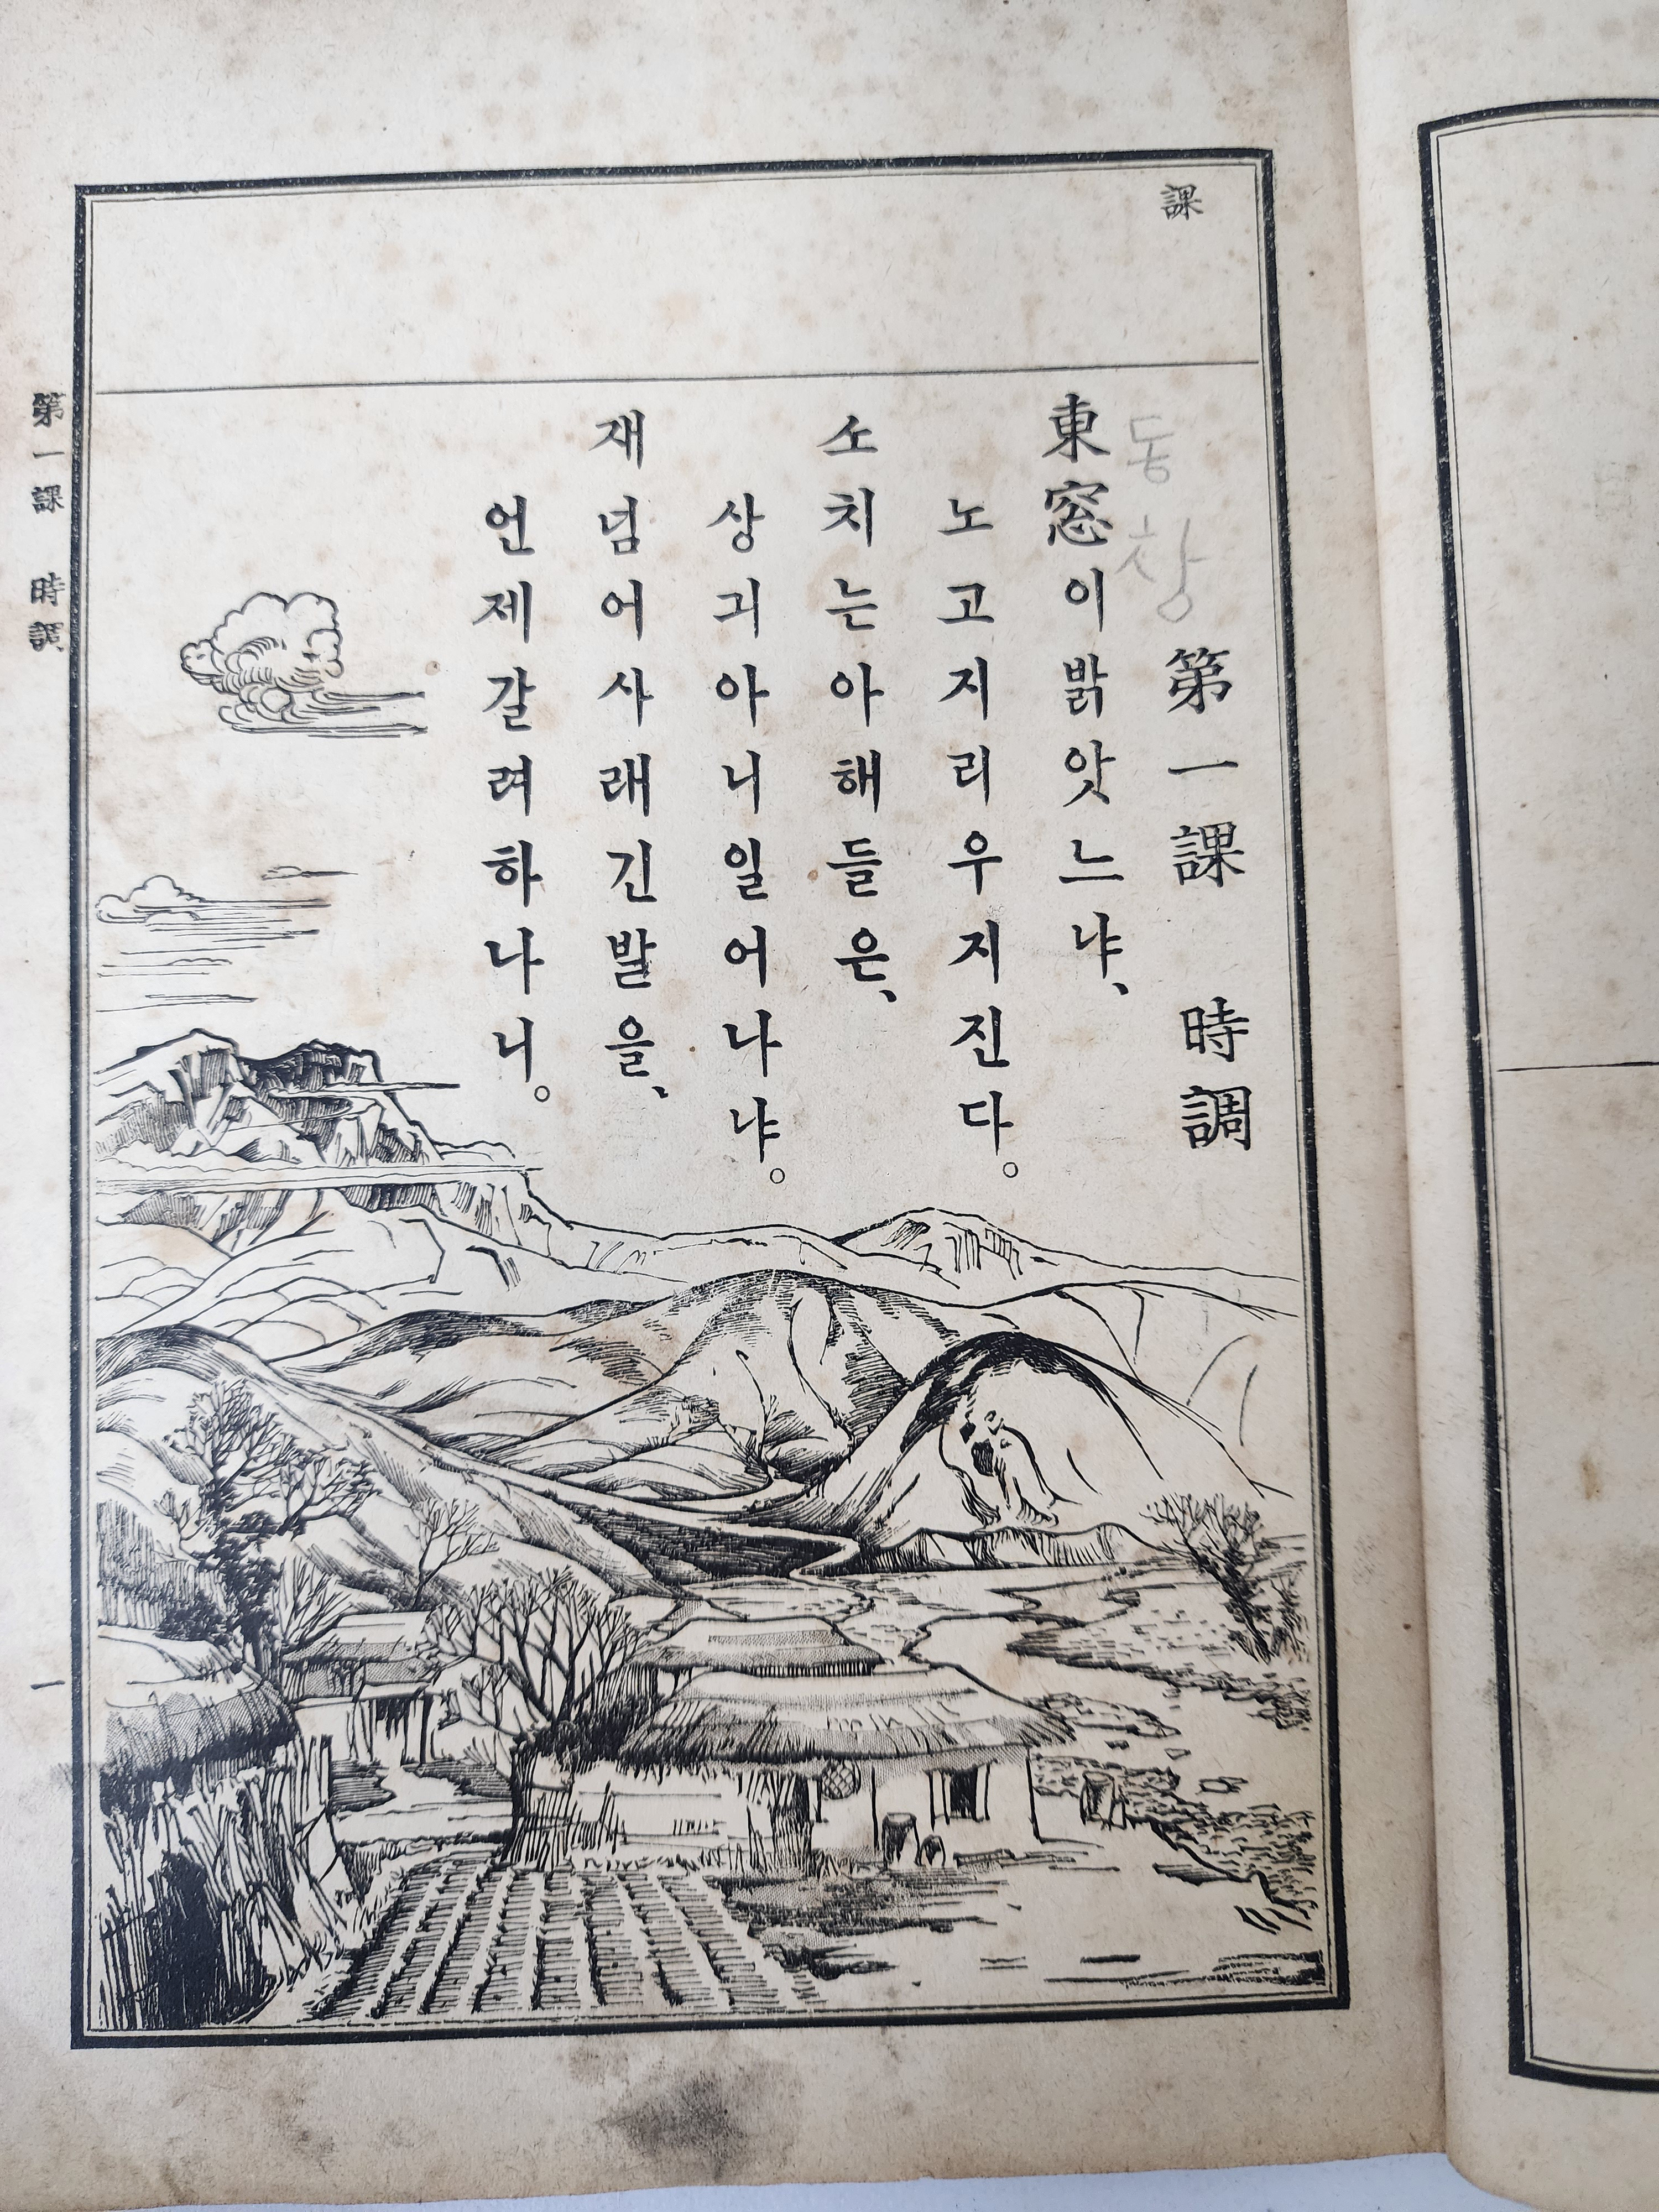 課
第一課 時調
동창
東窓이밝앗느냐、
노고지리우지진다。
소치는아해들은、
상긔아니일어나냐。
재넘어사래긴발을、
언제갈려하나니。
第一課 時調
一